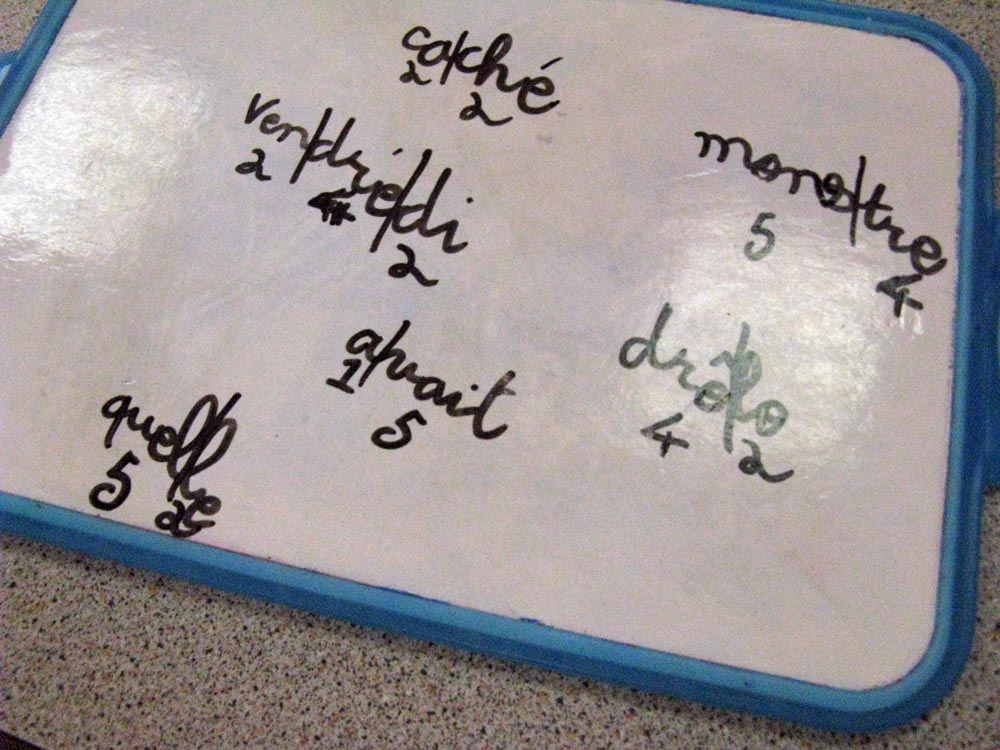 ca/ché
2 2
ven/dré/di
2 4 2
mons/tre
5 4
a/vait
1 5
4 2
quel/le
5 2